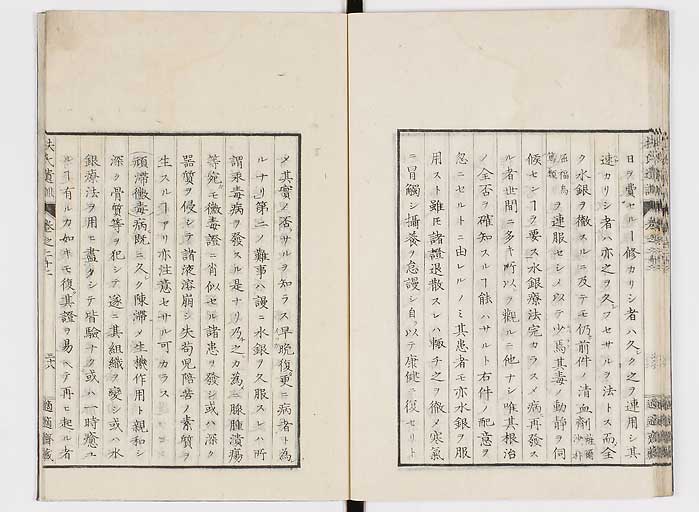 日ヲ費セルヿ修カリシ者ハ久ク之ヲ連用シ其
速カリシ者ハ亦之ヲ久フセサルヲ法トス而全
ク水銀ヲ徹スルニ及テモ仍前件ノ清血劑
ヲ連服セシメ以テ少焉其毒ノ動静ヲ伺
候センヿヲ要ス水銀療法完カラスメ病再發ス
ル者世間ニ多キ所以ヲ觀ルニ他ナシ唯其根治
ノ全否ヲ確知スルヿ能ハサルト右件ノ配意ヲ
忽ニセルトニ由レルノミ其患者モ亦水銀ヲ服
用スト雖𪜈諸證退散スレハ輙チ之ヲ徹メ寒氣
ニ冒觸シ攝養ヲ怠謾シ自ラ以テ康健ニ復セリト
メ其實ノ否サルヲ知ラス早晩復更ニ病者ト為
ルナリ第二ノ難事ハ謾ニ水銀ヲ久服スレハ所
謂汞毒病ヲ發スル是ナリ乃之カ為ニ腺腫潰瘍
等宛モ黴毒證ニ肖似セル諸患ヲ發シ或ハ深ク
器質ヲ侵シテ諸液溶崩シ失苟児陪苦ノ素質ヲ
生スルヿアリ亦注意セサル可カラス
頑滞黴毒病既ニ久ク陳滞メ生機作用ト親和シ
深ク骨質等ヲ犯シテ遂ニ其組織ヲ變シ或ハ水
銀療法ヲ用ヒ盡クシテ皆驗ナク或ハ一時癒ユ
ルヿ有ルカ如キモ復其證ヲ易ヘテ再ヒ起ル者
扶氏遺訓 巻之二十二
適適齋藏